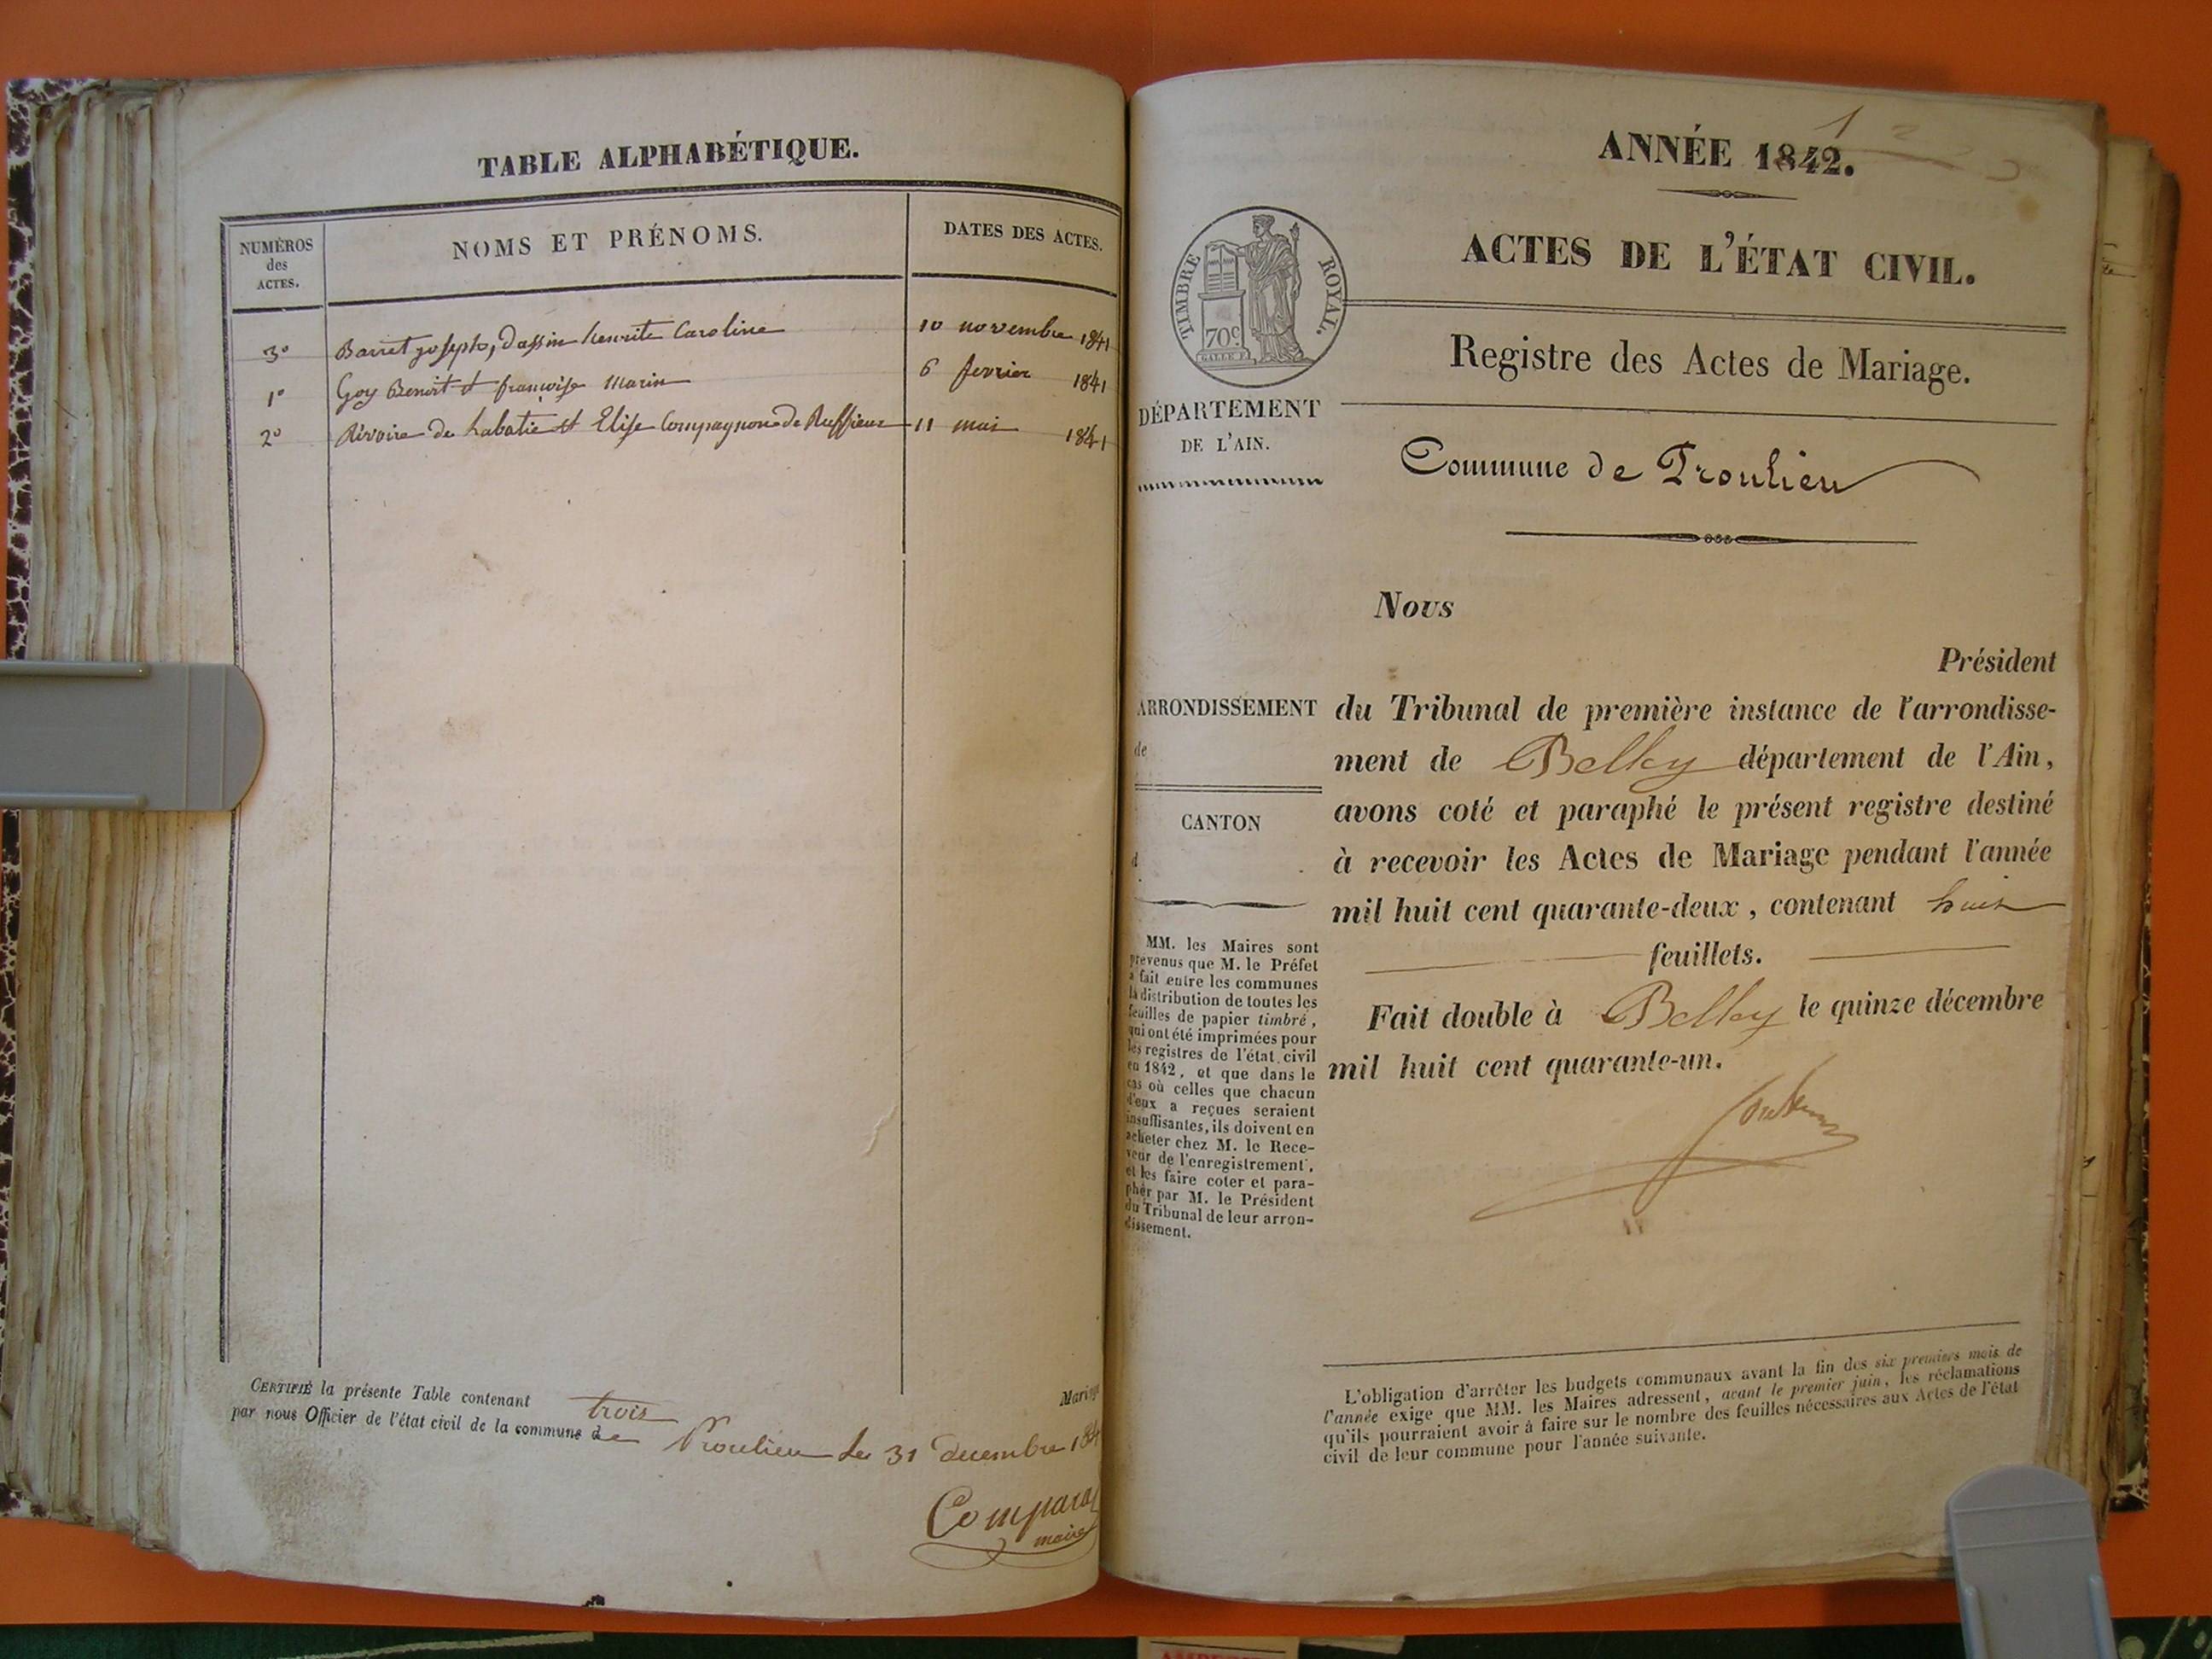 TABLE ALPHABÉTIQUE.
NUMÉROS
des
ACTES.
NOMS ET PRÉNOMS.
DATES DES ACTES.
3º Barret joseph, dassin henrite Caroline 10 novembre 1841
1º Goy Benoit et françoise Marin 6 fevrier 1841
2º Rivoire de Labatie et Elise Compagnon de Ruffieux 11 mai 1841
CERTIFIÉ la présente Table contenant trois Mariage
par nous Officier de l'état civil de la commune de Proulieu le 31 decembre 184
maire
1
ANNÉE 1842.
ACTES DE L'ÉTAT CIVIL.
TIMBRE ROYAL.
70c
Registre des Actes de Mariage.
DÉPARTEMENT
DE L'AIN.
Commune de Proulieu
Nous
Président
ARRONDISSEMENT
de
CANTON
d
du Tribunal de première instance de l'arrondisse-
ment de Belley département de l'Ain,
avons coté et paraphé le présent registre destiné
à recevoir les Actes de Mariage pendant l'année
mil huit cent quarante-deux, contenant huit
feuillets.
Fait double à Belley le quinze décembre
mil huit cent quarante-un.
MM. les Maires sont
prévenus que M. le Préfet
a fait entre les communes
la distribution de toutes les
feuilles de papier timbré,
qui ont été imprimées pour
les registres de l'état civil
en 1842, et que dans le
cas où celles que chacun
d'eux a reçues seraient
insuffisantes, ils doivent en
acheter chez M. le Rece-
veur de l'enregistrement,
et les faire coter et para-
pher par M. le Président
du Tribunal de leur arron-
dissement.
L'obligation d'arrêter les budgets communaux avant la fin des six premiers mois de
l'année exige que MM. les Maires adressent, avant le premier juin, les réclamations
qu'ils pourraient avoir à faire sur le nombre des feuilles nécessaires aux Actes de l'état
civil de leur commune pour l'année suivante.